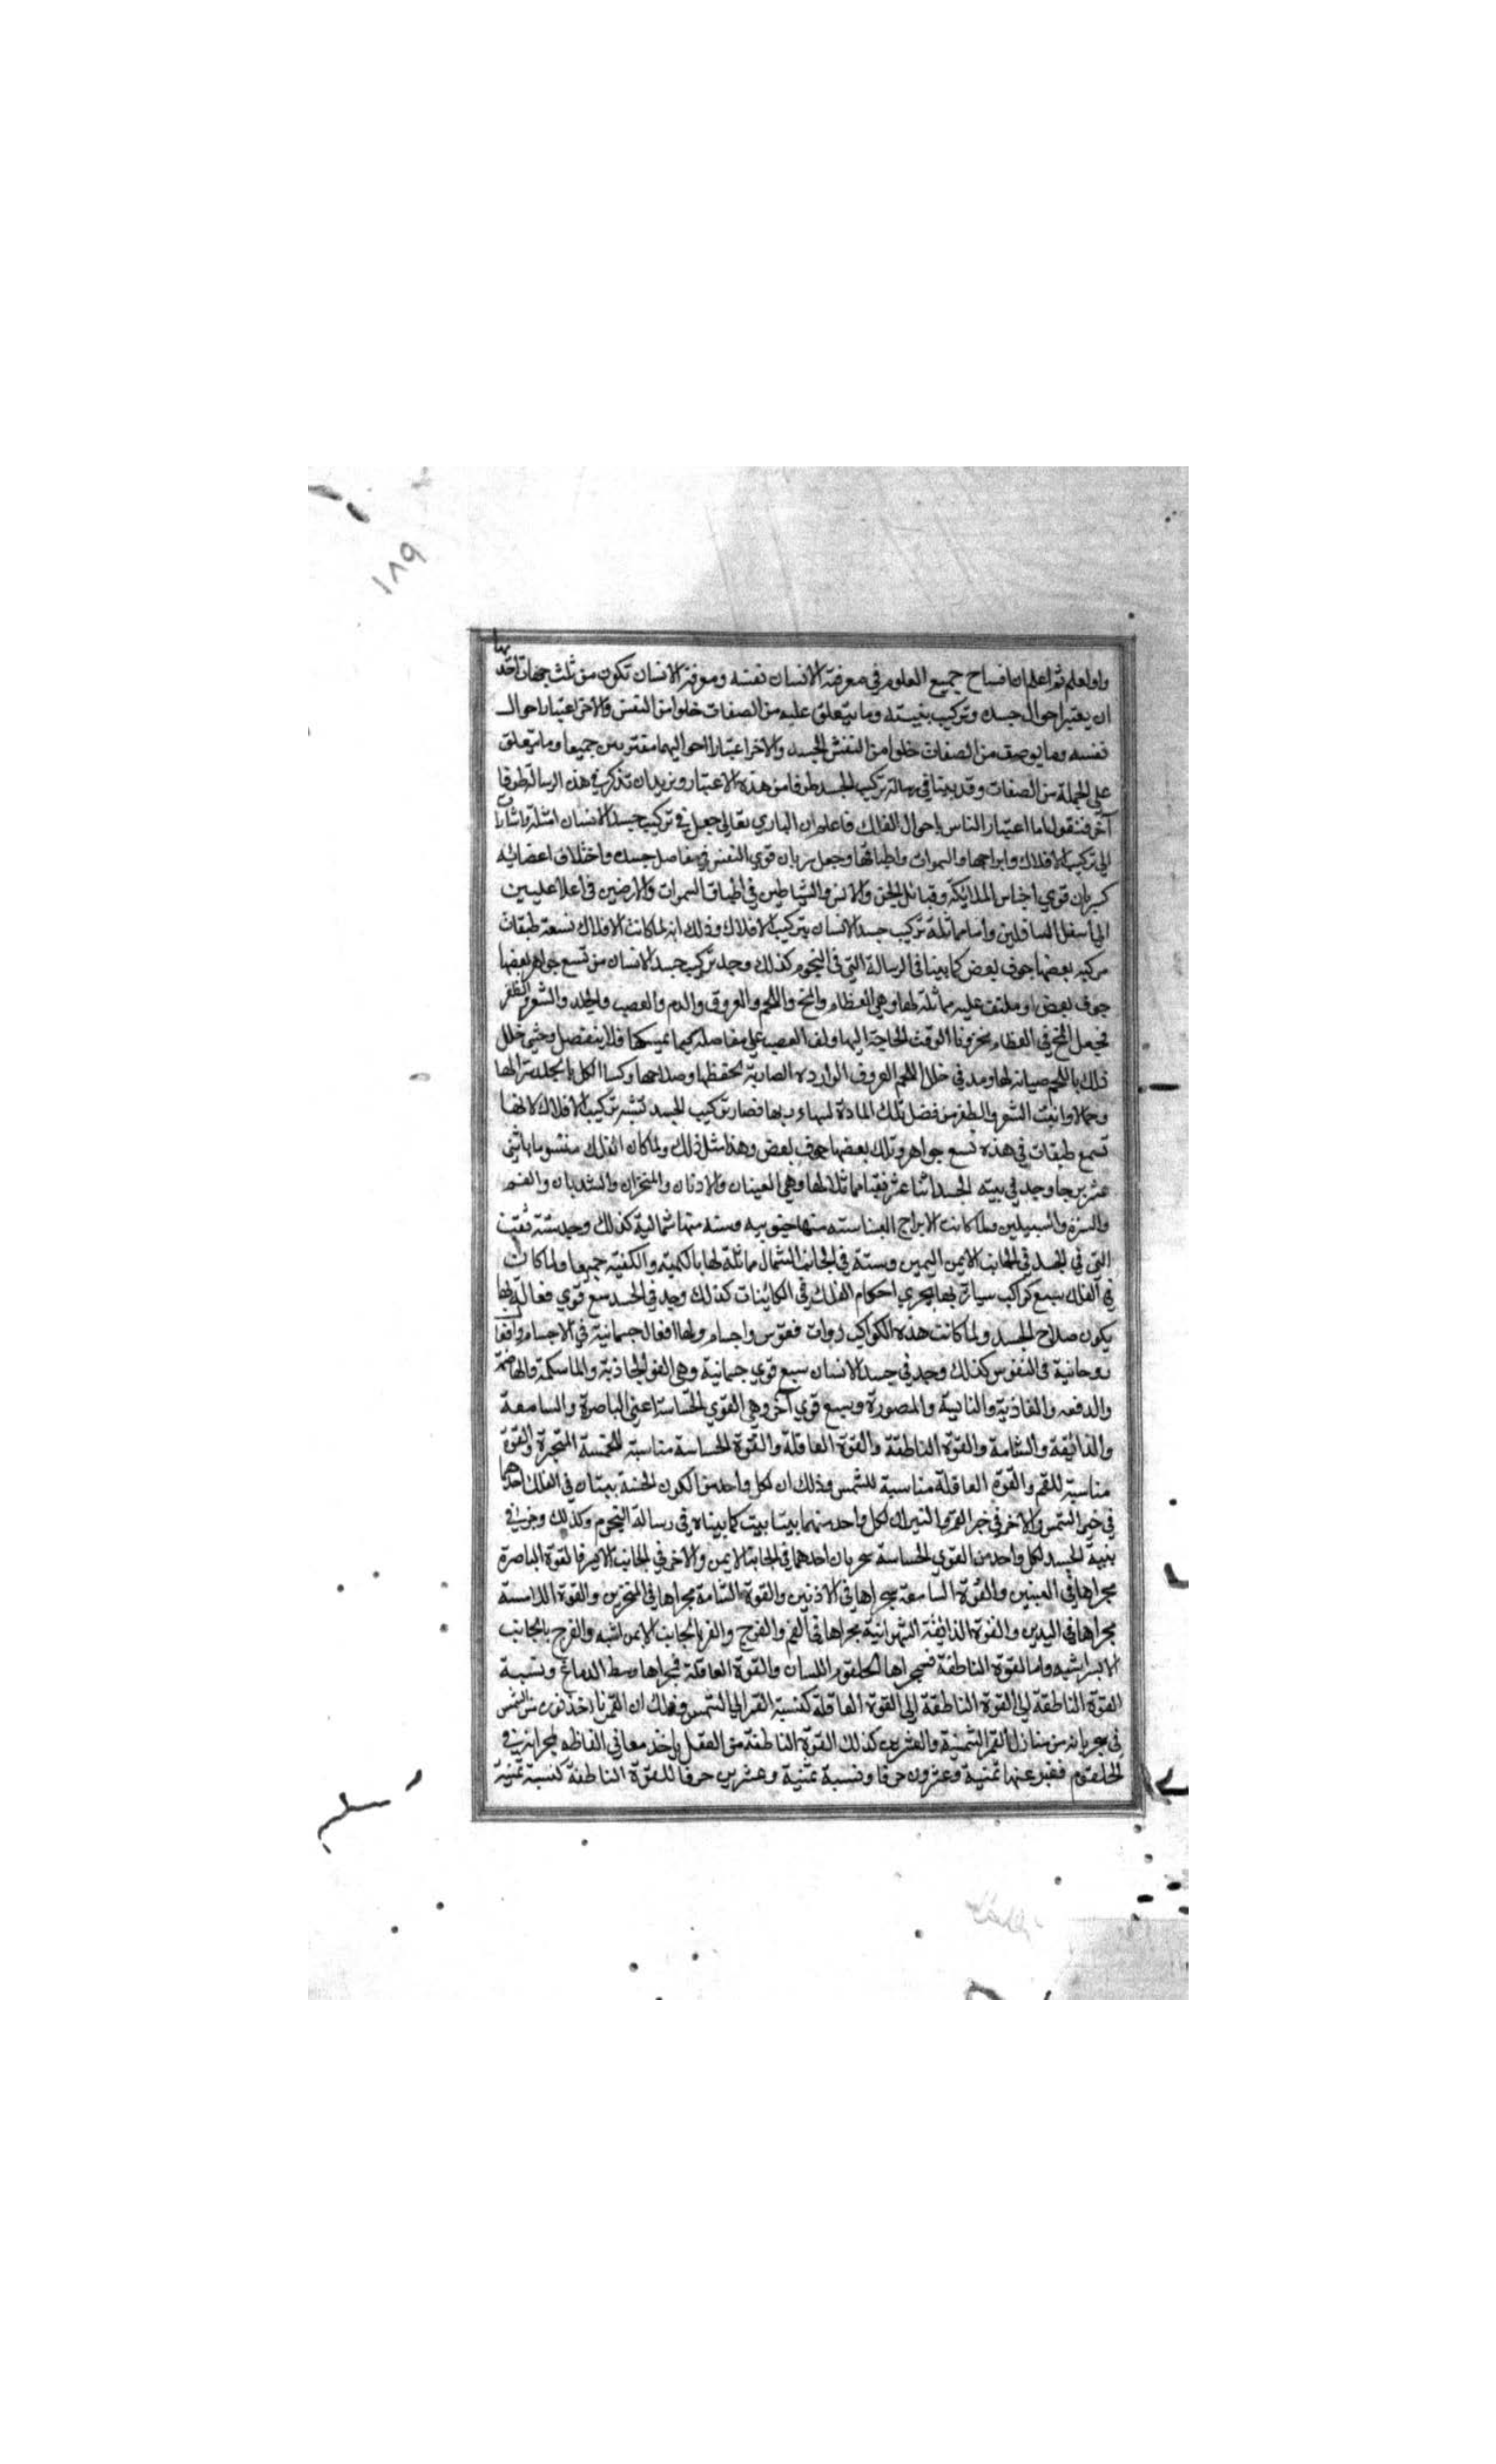 ١٨٩
واولعلم ثم اعلم ان افساح جميع العلوم في معرفة الانسان نفسه ومعرفة الانسان تكون من ثلث جهات احدها
ان يعتبر احوال جسده وتركيب بنيته وما يتعلق عليه من الصفات خلوا من النفس والاخر اعتبار احوال
نفسه وما يوصف من الصفات خلوا من النفش الجسد والاخر اعتبار احواليهما مقتربين جميعا وما يتعلق
على الجملة من الصفات وقد بينا في رسالة تركيب الجسد طرفا من هذه الاعتبار ونريد ان نذكر في هذه الرسالة طرفا
آخر فنقول اما اعتبار الناس باحوال الفلك فاعلم ان الباري تعالى جعل في تركيب جسد الانسان امثلة واشارات
الى تركيب الافلاك وابراجها والسموات واطباقها وجعل سريان قوي النفس في مفاصل جسده واختلاف اعضائه
كسريان قوي اجناس الملائكة وقبائل الجن والانس والشياطين في اطباق السموات والارضين في اعلا عليين
الى اسفل السافلين واما مماثلة تركيب جسد الانسان بتركيب الافلاك وذلك انه لما كانت الافلاك تسعة طبقات
مركبه بعضها جوف بعض كما بينا في الرسالة التي في النجوم كذلك وجد تركيب جسد الانسان من تسع جواهر بعضها
جوف بعض او ملتف عليه مماثلة لها وهي العظام والمخ واللحم والعروق والدم والعصب والجلد والشعر والظفر
فجعل المخ في العظام مخزونا الوقت الحاجة اليها ولف العصب على مفاصله كيما يمسكها فلا ينفصل وحشى خلل
ذلك باللحم صيانة لها ومد في خلل اللحم العروق الواردة الضاربة لحفظها وصلاحها وكسا الكل بالجلد سترا لها
وجمالا وانبت الشعر والظفر من فضل تلك المادة لبهاء بها فصار تركيب الجسد تشبه تركيب الافلاك لانها
تسع طبقات في هذه تسع جواهر وتلك بعضها جوف بعض وهذا مثل ذلك ولما كان الفلك منسوما باثني
عشر برجا وجد في بنيه الجسد اثنا عشر ثقبا مماثلا لها وهي العينان والاذنان والمنخران والثديان والفم
والسرة والسبيلين ولما كانت الابراج سته منها جنوبيه وسته منها شمالية كذلك وجد سته ثقب
التي في الجسد في الجانب الايمن اليمين وستة في الجانب الشمال مماثلة لها بالكميه والكفيه جميعا ولما كان
في الفلك سبع كواكب سيارة بها يجري احكام الفلك في الكائنات كذلك وجد في الجسد سبع قوي فعالة بها
يكون صلاح الجسد ولما كانت هذه الكواكب ذوات نفوس واجسام ولها افعال جسمانية في الاجسام وافعا
روحانية في النفوس كذلك وجد في جسد الانسان سبع قوي جسمانية وهي القوة الجاذبة والماسكة والهاضمة
والدفعه والغاذية والنامية والمصورة وسبع قوي آخر وهي القوي الحساسة اعني الباصرة والسامعة
والذائقة والشامة والقوة الناطقة والقوة العاقلة والقوة الحساسة مناسبة للخمسة المتحيرة والقوة
مناسبة للقمر والقوة العاقلة مناسبة للشمس وذلك ان لكل واحد من الكون الخمسة بيتان في الفلك احدهما
في خير الشمس والاخر في خير القمر والنيران لكل واحد منهما بيتا بيت كما بيناه في رسالة النجوم وكذلك وجد في
بنية الجسد لكل واحد من القوي الحساسة مجريان احدهما في الجانب الايمن والاخر في الجانب الايسر فالقوة الباصرة
مجراها في العينين والقوة السامعة مجراها في الاذنين والقوة الشامة مجراها في المنخرين والقوة اللامسة
مجراها في اليدين والقوة الذائقة الشهوانية مجراها في الفم والفرج والفم بالجانب الايمن اشبه والفرج بالجانب
الايسر اشبه واما القوة الناطقة فمجراها الحلقوم اللسان والقوة العاقلة فمجراها وسط الدماغ ونسبة
القوة الناطقة الى القوة الناطقة الى القوة العاقلة كنسبة القمر الى الشمس وذلك ان القمر ياخذ نوره من الشمس
في مجريانه من منازل القمر الثمنية والعشرين كذلك القوة الناطقة من العقل ياخذ معاني الفاظه بمجرانه في
الحلقوم فيعبر عنها ثمنية وعشرون حرفا ونسبة ثمنية وعشرين حرفا للقوة الناطقة كنسبة ثمنية